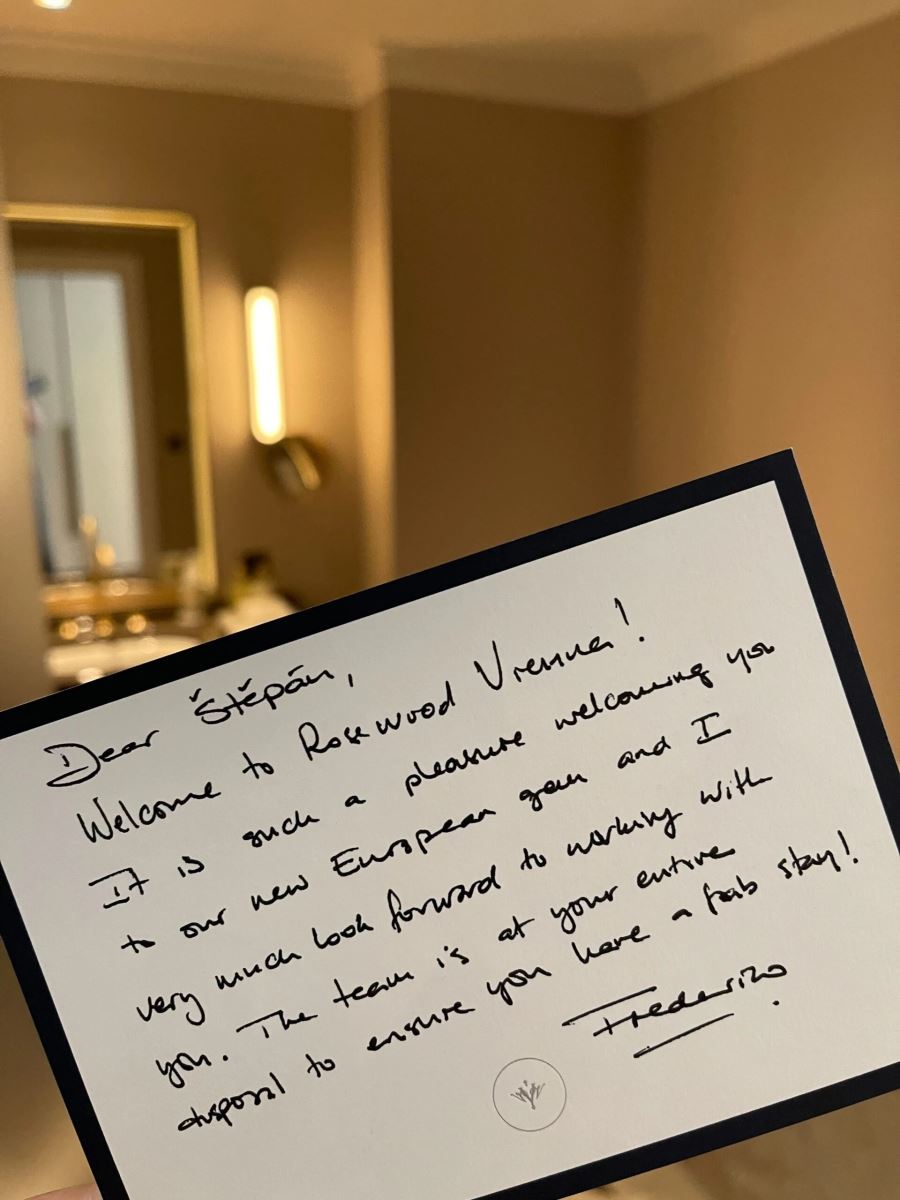 Dear Štěpán,
Welcome to Rosewood Vienna!
It is such a pleasure welcoming you
to our new European gem and I
very much look forward to working with
you. The team is at your entire
disposal to ensure you have a fab stay!
Frederik